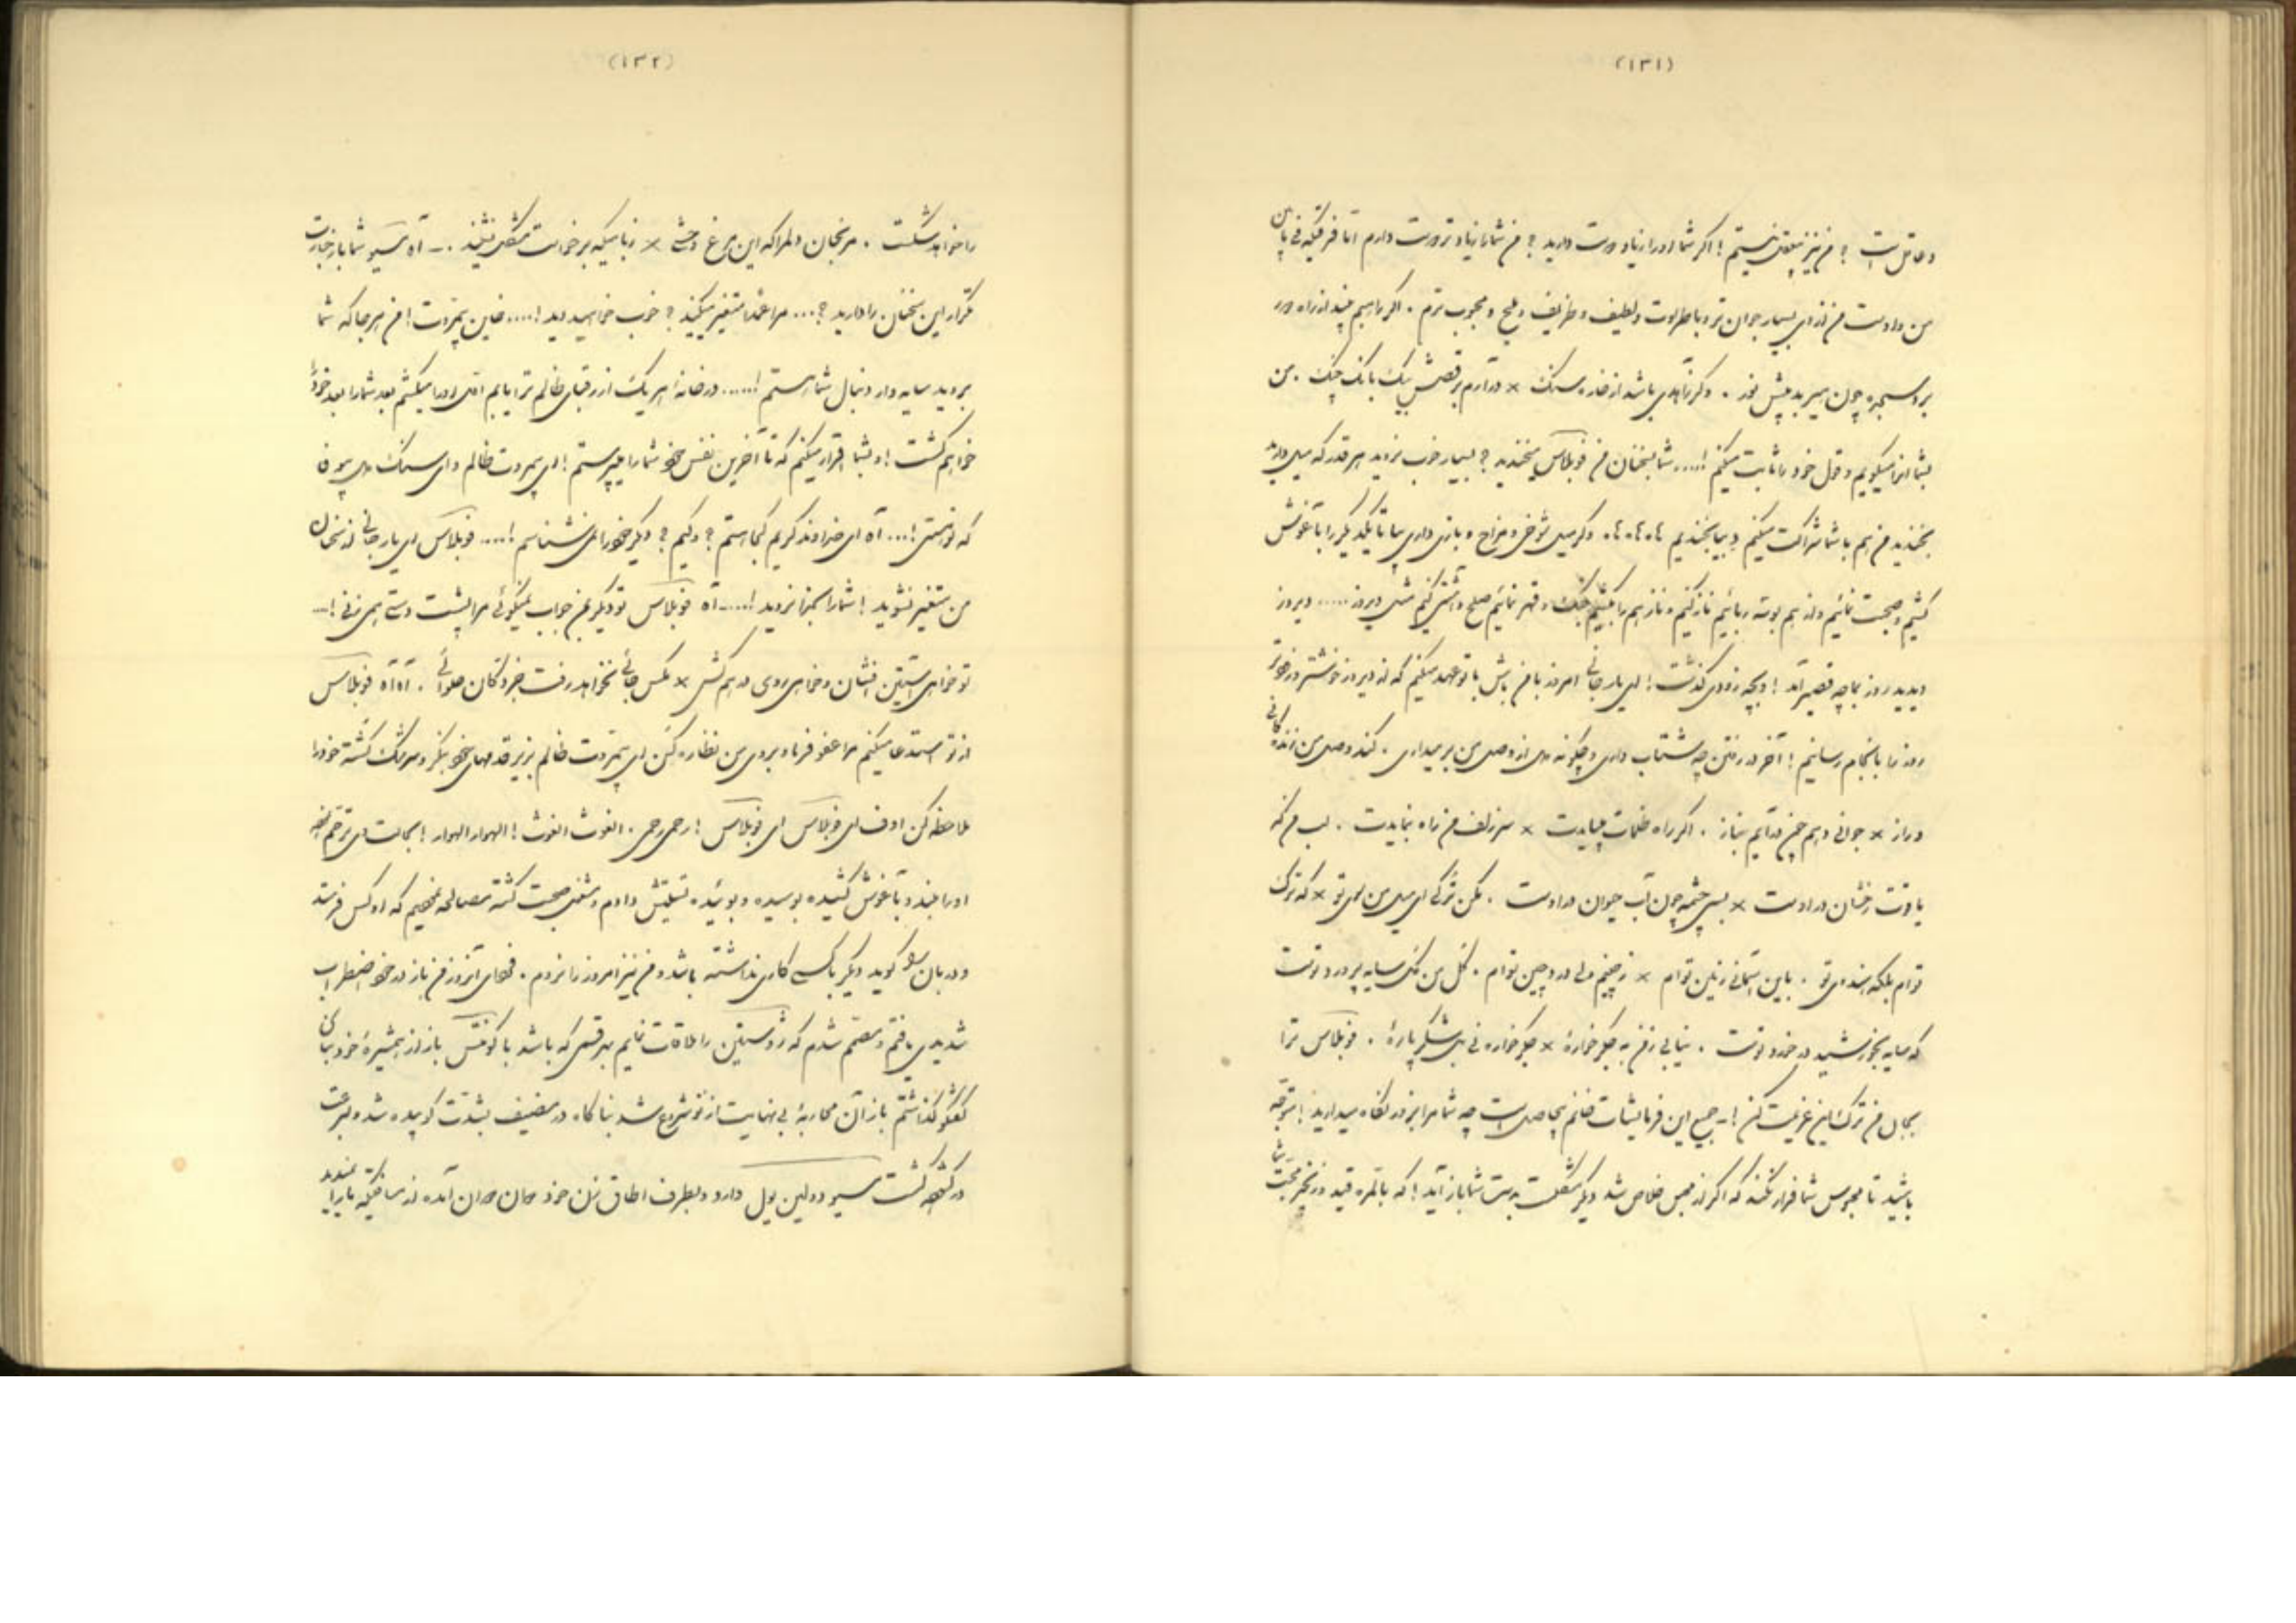 (۱۳۱)
و عاقل است ؟ من نیز بیعقل نیستم ! اگر شما او را زیاد دوست دارید ؟ من شما را زیادتر دوست دارم اما فرقیکه فی مابین
من و اوست من از وی بسیار جوان تر و با طراوت و لطیف و ظریف و ملیح و محبوب ترم . اگر راهبم بیند از راه دور
برد سجده چون هیربد پیش نور . وگر زاهدی باشد از خاره سنگ × درآرم برقص بیک بانگ چنگ . من
بشما اینرا میگویم و قول خود را ثابت میکنم !.... شما بسخنان من فوبلاس میخندید ؟ بسیار خوب بزنید هر قدر که میل دارید
بخندید من هم با شما شراکت میکنم و بیا بخندیم ها ها ها ها وگر میل شوخی و مزاح و بازی داری بیا تا یکدیگر را بآغوش
کشیم و صحبت نمائیم و از هم بوسه ربائیم ناز کنیم و ناز هم را بکشیم جنگ و قهر نمائیم صلح و آشتی کنیم مثل دیروز ..... دیروز
دیدید روز بما چه قصیر آمد ! و بچه زودی گذشت ! ای یار جانی امروز با من باش با تو عهد میکنم که از دیروز خوشتر و خوبتر
روز را بانجام رسانیم ! آخر در رفتن چه شتاب داری و چگونه دل از وصل من برمیداری . کند وصل من زندگانی
دراز × جوانی دهم چون درآیم بناز . اگر راه ظلمات میبایدت × سر زلف من راه بنمایدت . لب من که
یاقوت رخشان در اوست × بسی چشمه چون آب حیوان در اوست . مکن ترکی ای میل من سوی تو × که ترک
توام بلکه هندوی تو . باین آسمانی زمین توام × ز چینم ولی در دو چین توام . گل من گلی سایه پرورد توست
که سایه بخورشید در خورد توست . نیابی ز من به جگر خوارهٔ × جگر خواره نی بل شکر پارهٔ . فوبلاس ترا
بجان من ترک این عزیمت کن !ـ جمیع این فرمایشات خانم بیحاصل است چه شما مرا بزور نگاه میدارید ! متوجه
باشید تا محبوس شما فرار نکند که اگر از محبس خلاص شد دیگر مشکلست بدست شما باز آید ! که بالمره قید زنجیر محبت شما
(۱۳۲)
را خواهد شکست . مرنجان دلم را که این مرغ وحشی × ز بامیکه برخواست مشکل نشیند .ـ آه مسیو شما باز جسارت
تکرار این سخنان را دارید ؟... مرا عمداً متغیر میکنید ؟ خوب خواهید دید !.... خاین بیمروت ! من هر جا که شما
بروید سایه وار دنبال شما هستم !...... در خانهٔ هر یک از رقبای ظالم ترا یابم اول او را میکشم بعد شما را بعد خود را
خواهم کشت ! و بشما اقرار میکنم که تا آخرین نفس خود شما را میپرستم ! ای بیمروت ظالم و ای سنگدل بیوفا
که تو هستی !... آه ای خداوند کریم کجا هستم ؟ و کیم ؟ دیگر خود را نمی شناسم !.... فوبلاس ای یار جانی از سخنان
من متغیر نشوید ! شما را بخدا نروید !.... آه فوبلاس تو دیگر بمن جواب نمیگوئی مرا بپشت دست همی زنی !ـ
تو خواهی آستین افشان و خواهی روی در هم کش × مگس جائی نخواهد رفت جز دکان حلوائی . آه آه فوبلاس
از تو استدعا میکنم مرا عفو فرما و بروی من نظاره کن ای بیمروت ظالم بزیر قدمهای خود بنگر و سرشک کشته خود را
ملاحظه کن اوف ای فوبلاس ای فوبلاس ! رحمی رحمی . الغوث الغوث !
او را بلند و بآغوش کشیده بوسیده و بوئیده تسلیتش دادم و مشغول صحبت گشته
و دربان گوید دیگر با کسی کاری نداشته باشد و من نیز امروز را نروم . فردای آنروز من باز در خود اضطراب
شدیدی یافتم و مصمم شدم که ژوستین را ملاقات نمایم بهر قسمی که باشد با کونتس باز از همشیرهٔ خود بنای
گفتگو گذاشتم باز آن محاربهٔ بی نهایت از نو شروع شد بناگاه در مضیف بشدت کوبیده شد و بسرعت
در گشوده گشت مسیو دولین یول وارد و بطرف اطاق زن خود دوان دوان آمده